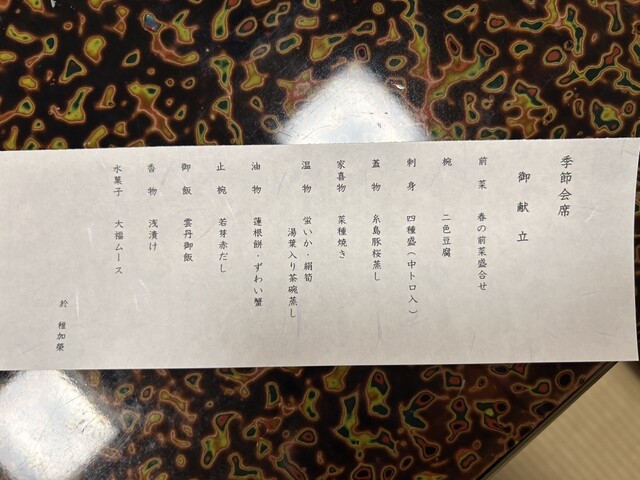 季節会席
御献立
前菜 春の前菜盛合せ
椀 二色豆腐
刺身 四種盛（中トロ入）
蓋物 糸島豚桜蒸し
家喜物 菜種焼き
温物 蛍いか・絹筍
湯葉入り茶碗蒸し
油物 蓮根餅・ずわい蟹
止椀 若芽赤だし
御飯 雲丹御飯
香物 浅漬け
水菓子 大福ムース
於 稚加榮